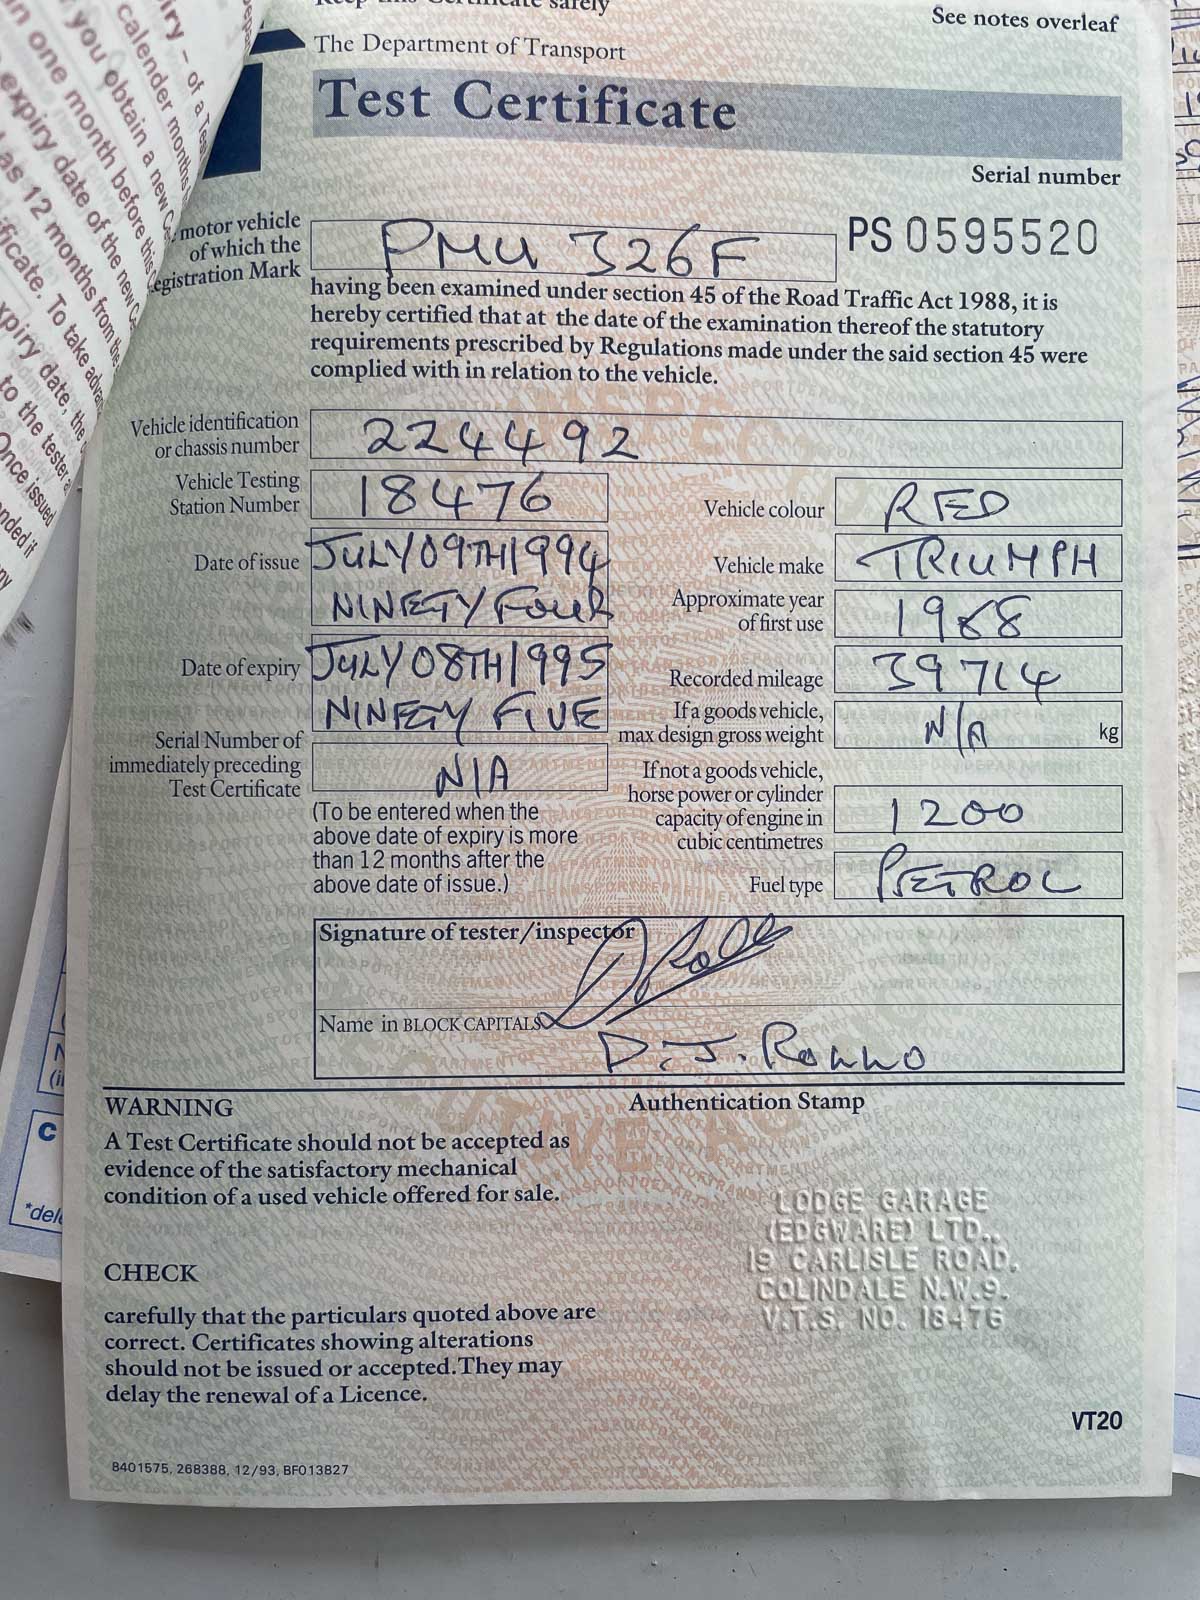 Keep this Certificate safely
See notes overleaf
The Department of Transport
Test Certificate
Serial number
motor vehicle
of which the
Registration Mark
PMU 326F
PS 0595520
having been examined under section 45 of the Road Traffic Act 1988, it is
hereby certified that at the date of the examination thereof the statutory
requirements prescribed by Regulations made under the said section 45 were
complied with in relation to the vehicle.
Vehicle identification
or chassis number
224492
Vehicle Testing
Station Number
18476
Vehicle colour
RED
Date of issue
JULY 09TH 1994
NINETY FOUR
Vehicle make
TRIUMPH
Approximate year
of first use
1968
Date of expiry
JULY 08TH 1995
NINETY FIVE
Recorded mileage
39714
If a goods vehicle,
max design gross weight
N/A
kg
Serial Number of
immediately preceding
Test Certificate
N/A
(To be entered when the
above date of expiry is more
than 12 months after the
above date of issue.)
If not a goods vehicle,
horse power or cylinder
capacity of engine in
cubic centimetres
1200
Fuel type
PETROL
Signature of tester/inspector
Name in BLOCK CAPITALS
D. J. ROLLO
WARNING
A Test Certificate should not be accepted as
evidence of the satisfactory mechanical
condition of a used vehicle offered for sale.
Authentication Stamp
LODGE GARAGE
(EDGWARE) LTD.,
19 CARLISLE ROAD,
COLINDALE N.W.9.
V.T.S. NO. 18476
CHECK
carefully that the particulars quoted above are
correct. Certificates showing alterations
should not be issued or accepted. They may
delay the renewal of a Licence.
VT20
8401575, 268388, 12/93, BF013827